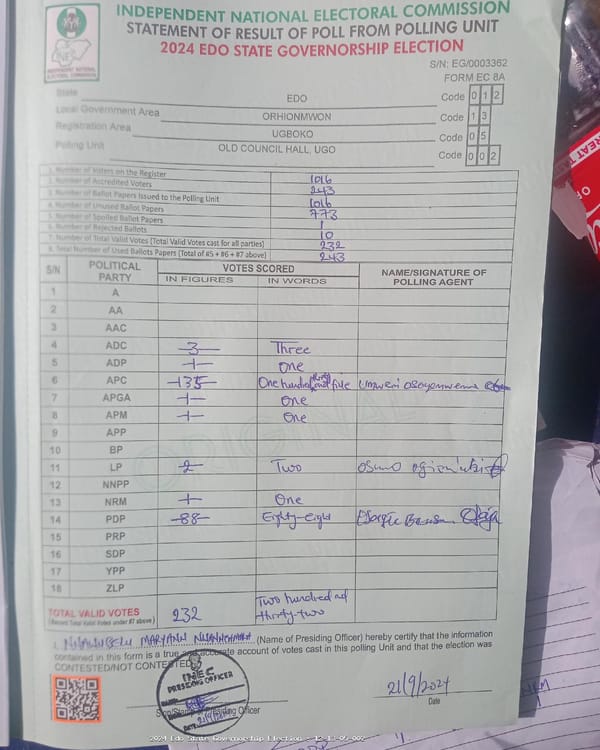 INDEPENDENT NATIONAL ELECTORAL COMMISSION
STATEMENT OF RESULT OF POLL FROM POLLING UNIT
2024 EDO STATE GOVERNORSHIP ELECTION
S/N: EG/0003362
FORM EC 8A
INEC
INDEPENDENT NATIONAL ELECTORAL COMMISSION
State EDO Code 0 1 2
Local Government Area ORHIONMWON Code 1 3
Registration Area UGBOKO Code 0 5
Polling Unit OLD COUNCIL HALL, UGO Code 0 0 2
1. Number of Voters on the Register 1016
2. Number of Accredited Voters 243
3. Number of Ballot Papers Issued to the Polling Unit 1016
4. Number of Unused Ballot Papers 773
5. Number of Spoiled Ballot Papers 1
6. Number of Rejected Ballots 10
7. Number of Total Valid Votes (Total Valid Votes cast for all parties) 232
8. Total Number of Used Ballots Papers (Total of #5 + #6 + #7 above) 243
S/N POLITICAL PARTY VOTES SCORED NAME/SIGNATURE OF POLLING AGENT
IN FIGURES IN WORDS
1 A
2 AA
3 AAC
4 ADC 3 Three
5 ADP 1 One
6 APC 135 One hundred and thirty five
7 APGA 1 One
8 APM 1 One
9 APP
10 BP
11 LP 2 Two
12 NNPP
13 NRM 1 One
14 PDP 88 Eighty-eight
15 PRP
16 SDP
17 YPP
18 ZLP
TOTAL VALID VOTES 232 Two hundred and thirty-two
(Record Total Valid Votes under #7 above)
I, MARYANN (Name of Presiding Officer) hereby certify that the information
contained in this form is a true and accurate account of votes cast in this polling Unit and that the election was
CONTESTED/NOT CONTESTED
INEC
PRESIDING OFFICER
DATE 21/9/2024
Sign/Stamp of Presiding Officer
21/9/2024
Date
ORIGINAL
2024 Edo State Governorship Election - 12-13-05-002